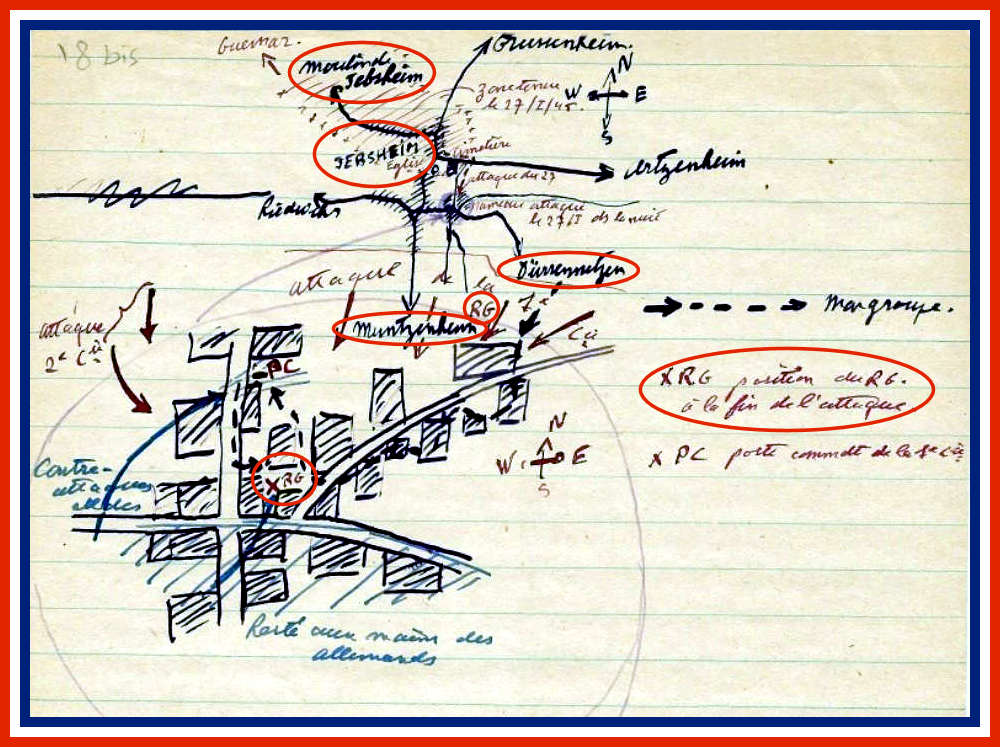 18 bis
Guemar.
Moulin de
Jebsheim
Grussenheim.
Zone tenue
le 27/I/45.
N
W E
S
JEBSHEIM
Eglise
Cimetière
Artzenheim
attaque du 27
Riedwihr
attaque
le 27/I ds la nuit
Dürrenentzen
attaque de la 1e Cie
RG
Muntzenheim
Mon groupe.
attaque
2e Cie
PC
X RG position du RG.
à la fin de l'attaque
N
W E
S
X PC poste commdt de la 1e Cie
X RG
Contre-
attaques
alldes
Resté aux mains des
allemands